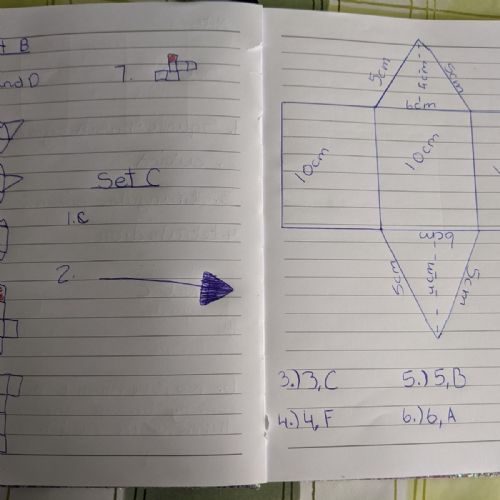 B
and D
7.
Set C
1. C
2.
5cm
5cm
4cm
6cm
10cm
10cm
6cm
5cm
4cm
5cm
3.) 3, C
5.) 5, B
4.) 4, F
6.) 6, A